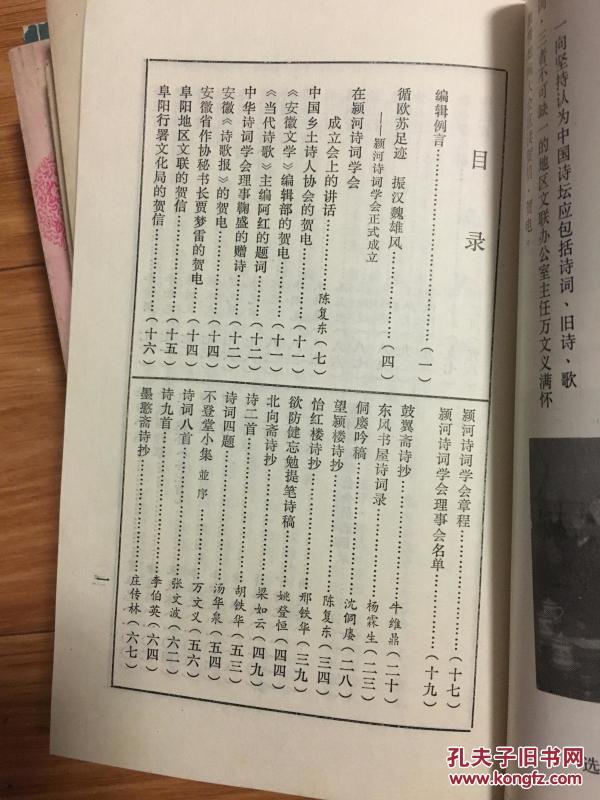 一向坚持认为中国诗坛应包括诗词、旧诗、歌
三者不可缺一的地区文联办公室主任万文义满怀
贺电。
选
目录
编辑例言……………………（一）
循欧苏足迹 振汉魏雄风……………（四）
——颍河诗词学会正式成立
在颍河诗词学会
成立会上的讲话…………陈复东（七）
中国乡土诗人协会的贺电………（十一）
《安徽文学》编辑部的贺电………（十一）
《当代诗歌》主编阿红的题词……（十二）
中华诗词学会理事鞠盛的赠诗……（十二）
安徽《诗歌报》的贺电……………（十四）
安徽省作协秘书长贾梦雷的贺电…（十四）
阜阳地区文联的贺信………………（十五）
阜阳行署文化局的贺信……………（十六）
颍河诗词学会章程…………………（十七）
颍河诗词学会理事会名单…………（十九）
鼓翼斋诗抄……………牛维鼎（二十）
东风书屋诗词录………杨霖生（二三）
侗廔吟稿………………沈侗廔（二八）
望颍楼诗抄……………陈复东（三四）
怡红楼诗抄……………邢铁华（三九）
欲防健忘勉提笔诗稿…姚登恒（四四）
北向斋诗抄……………梁如云（四九）
诗二首…………………胡铁华（五三）
诗词四题………………汤华泉（五四）
不登堂小集 並序……万文义（五六）
诗词八首………………张文波（六二）
诗九首…………………李伯英（六四）
墨憨斋诗抄……………庄传林（六七）
一
孔夫子旧书网
www.kongfz.com